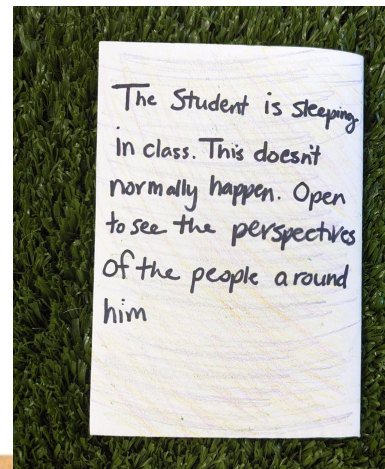 The Student is sleeping
in class. This doesn't
normally happen. Open
to see the perspectives
of the people around
him